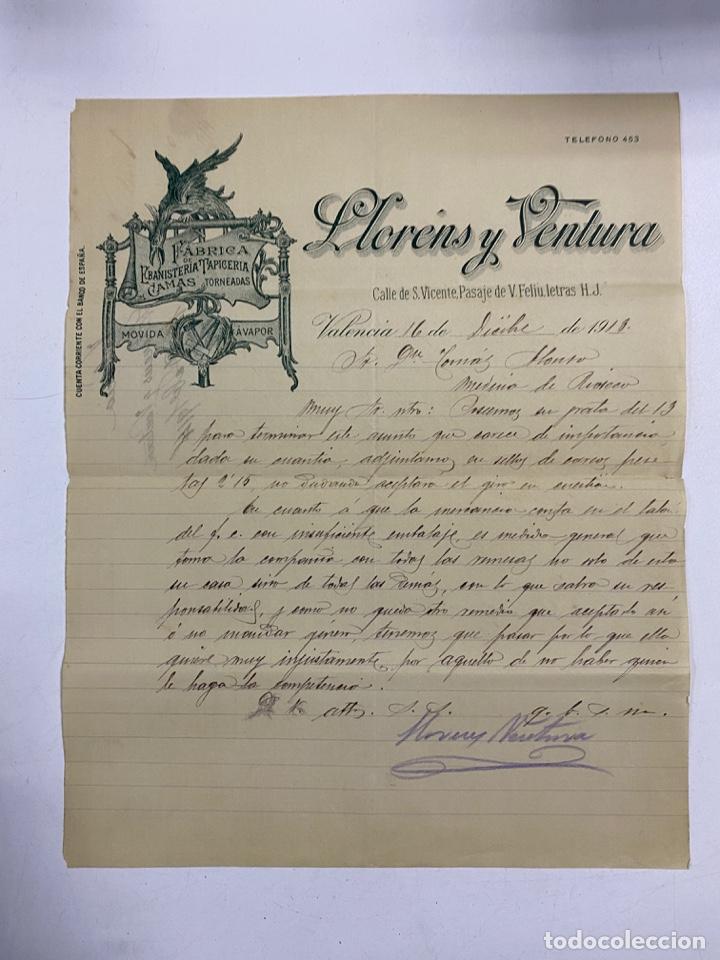 TELEFONO 463
CUENTA CORRIENTE CON EL BANCO DE ESPAÑA.
FÁBRICA
DE
EBANISTERÍA TAPICERIA
CAMAS TORNEADAS
MOVIDA Á VAPOR
Llorens y Ventura
Calle de S. Vicente, Pasaje de V. Feliu, letras H. J.
Valencia 16 de Dicbre de 1913.
Sr. Dn Tomas Alonso
Medina de Rioseco
Muy Sr. ntro: Poseemos su grata del 13
y para terminar este asunto que carece de importancia
dada su cuantia, adjuntamos en sellos de correos pese-
tas 2'15 no dudando aceptara el giro en cuestion.
En cuanto á que la mercancia consta en el talon
del f. c. con insuficiente embalaje, es medida general que
toma la compañia con todas las remesas no solo de esta
su casa sino de todas las demas, con lo que salva su res-
ponsabilidad, y como no queda otro remedio que aceptarlo asi
ó no mandar género, tenemos que pasar por lo que ella
quiere muy injustamente, por aquello de no haber quien
le haga la competencia.
atts. S. S. q. b. s. m.
Llorens Ventura
todocoleccion
todocoleccion.net